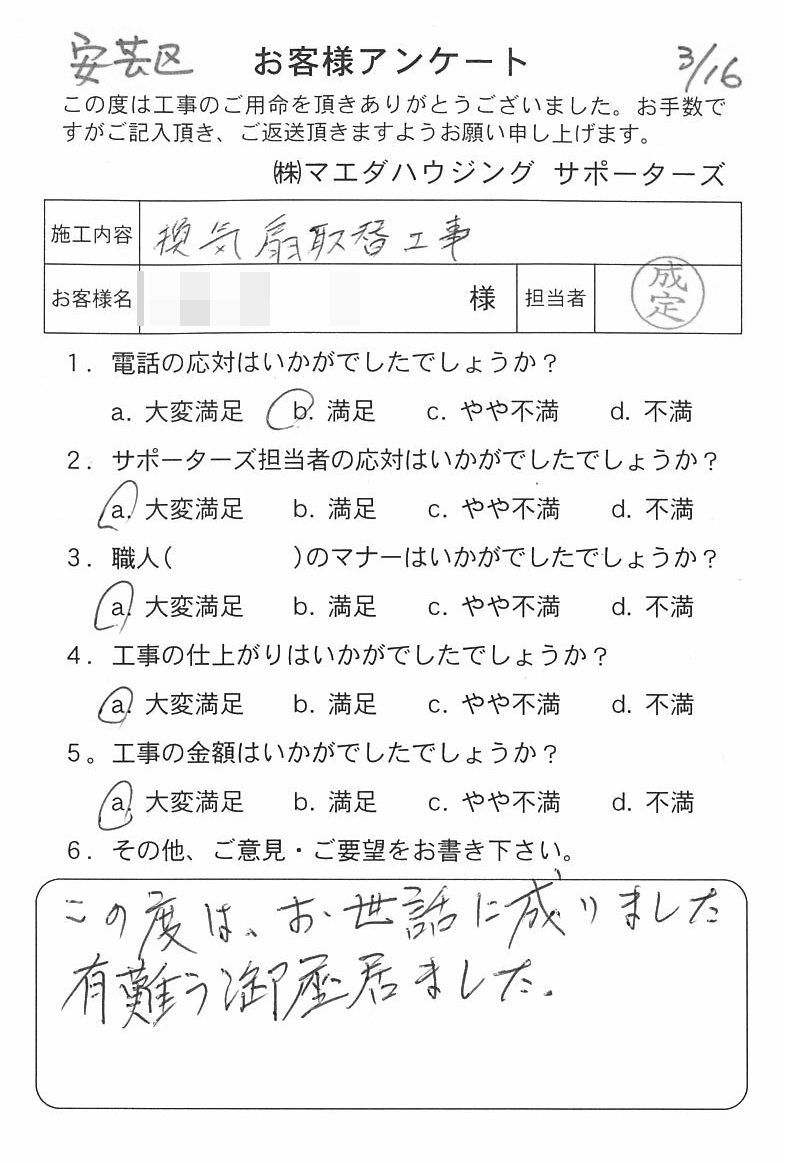 安芸区 お客様アンケート 3/16
この度は工事のご用命を頂きありがとうございました。お手数で
すがご記入頂き、ご返送頂きますようお願い申し上げます。
㈱マエダハウジング サポーターズ
施工内容 換気扇取替工事
お客様名 様 担当者 成定
1. 電話の応対はいかがでしたでしょうか？
a. 大変満足 b. 満足 c. やや不満 d. 不満
2. サポーターズ担当者の応対はいかがでしたでしょうか？
a. 大変満足 b. 満足 c. やや不満 d. 不満
3. 職人( )のマナーはいかがでしたでしょうか？
a. 大変満足 b. 満足 c. やや不満 d. 不満
4. 工事の仕上がりはいかがでしたでしょうか？
a. 大変満足 b. 満足 c. やや不満 d. 不満
5。工事の金額はいかがでしたでしょうか？
a. 大変満足 b. 満足 c. やや不満 d. 不満
6. その他、ご意見・ご要望をお書き下さい。
この度は、お世話に成りました
有難う御座居ました.